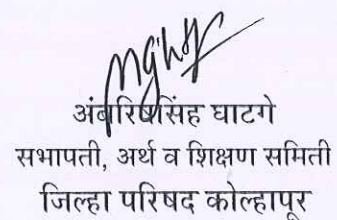 अंबरिषसिंह घाटगे
सभापती, अर्थ व शिक्षण समिती
जिल्हा परिषद कोल्हापूर